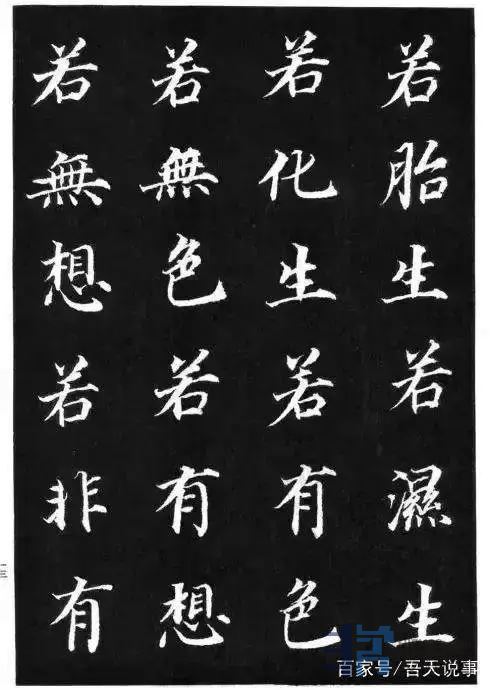 若胎生若濕生
若化生若有色
若無色若有想
若無想若非有
百家号/吾天说事